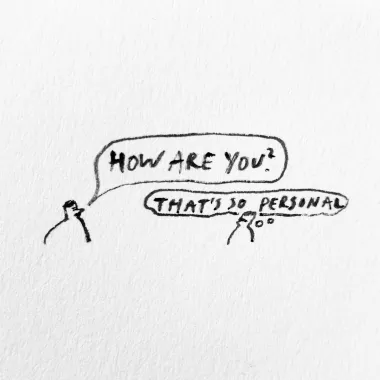 HOW ARE YOU?
THAT'S SO PERSONAL